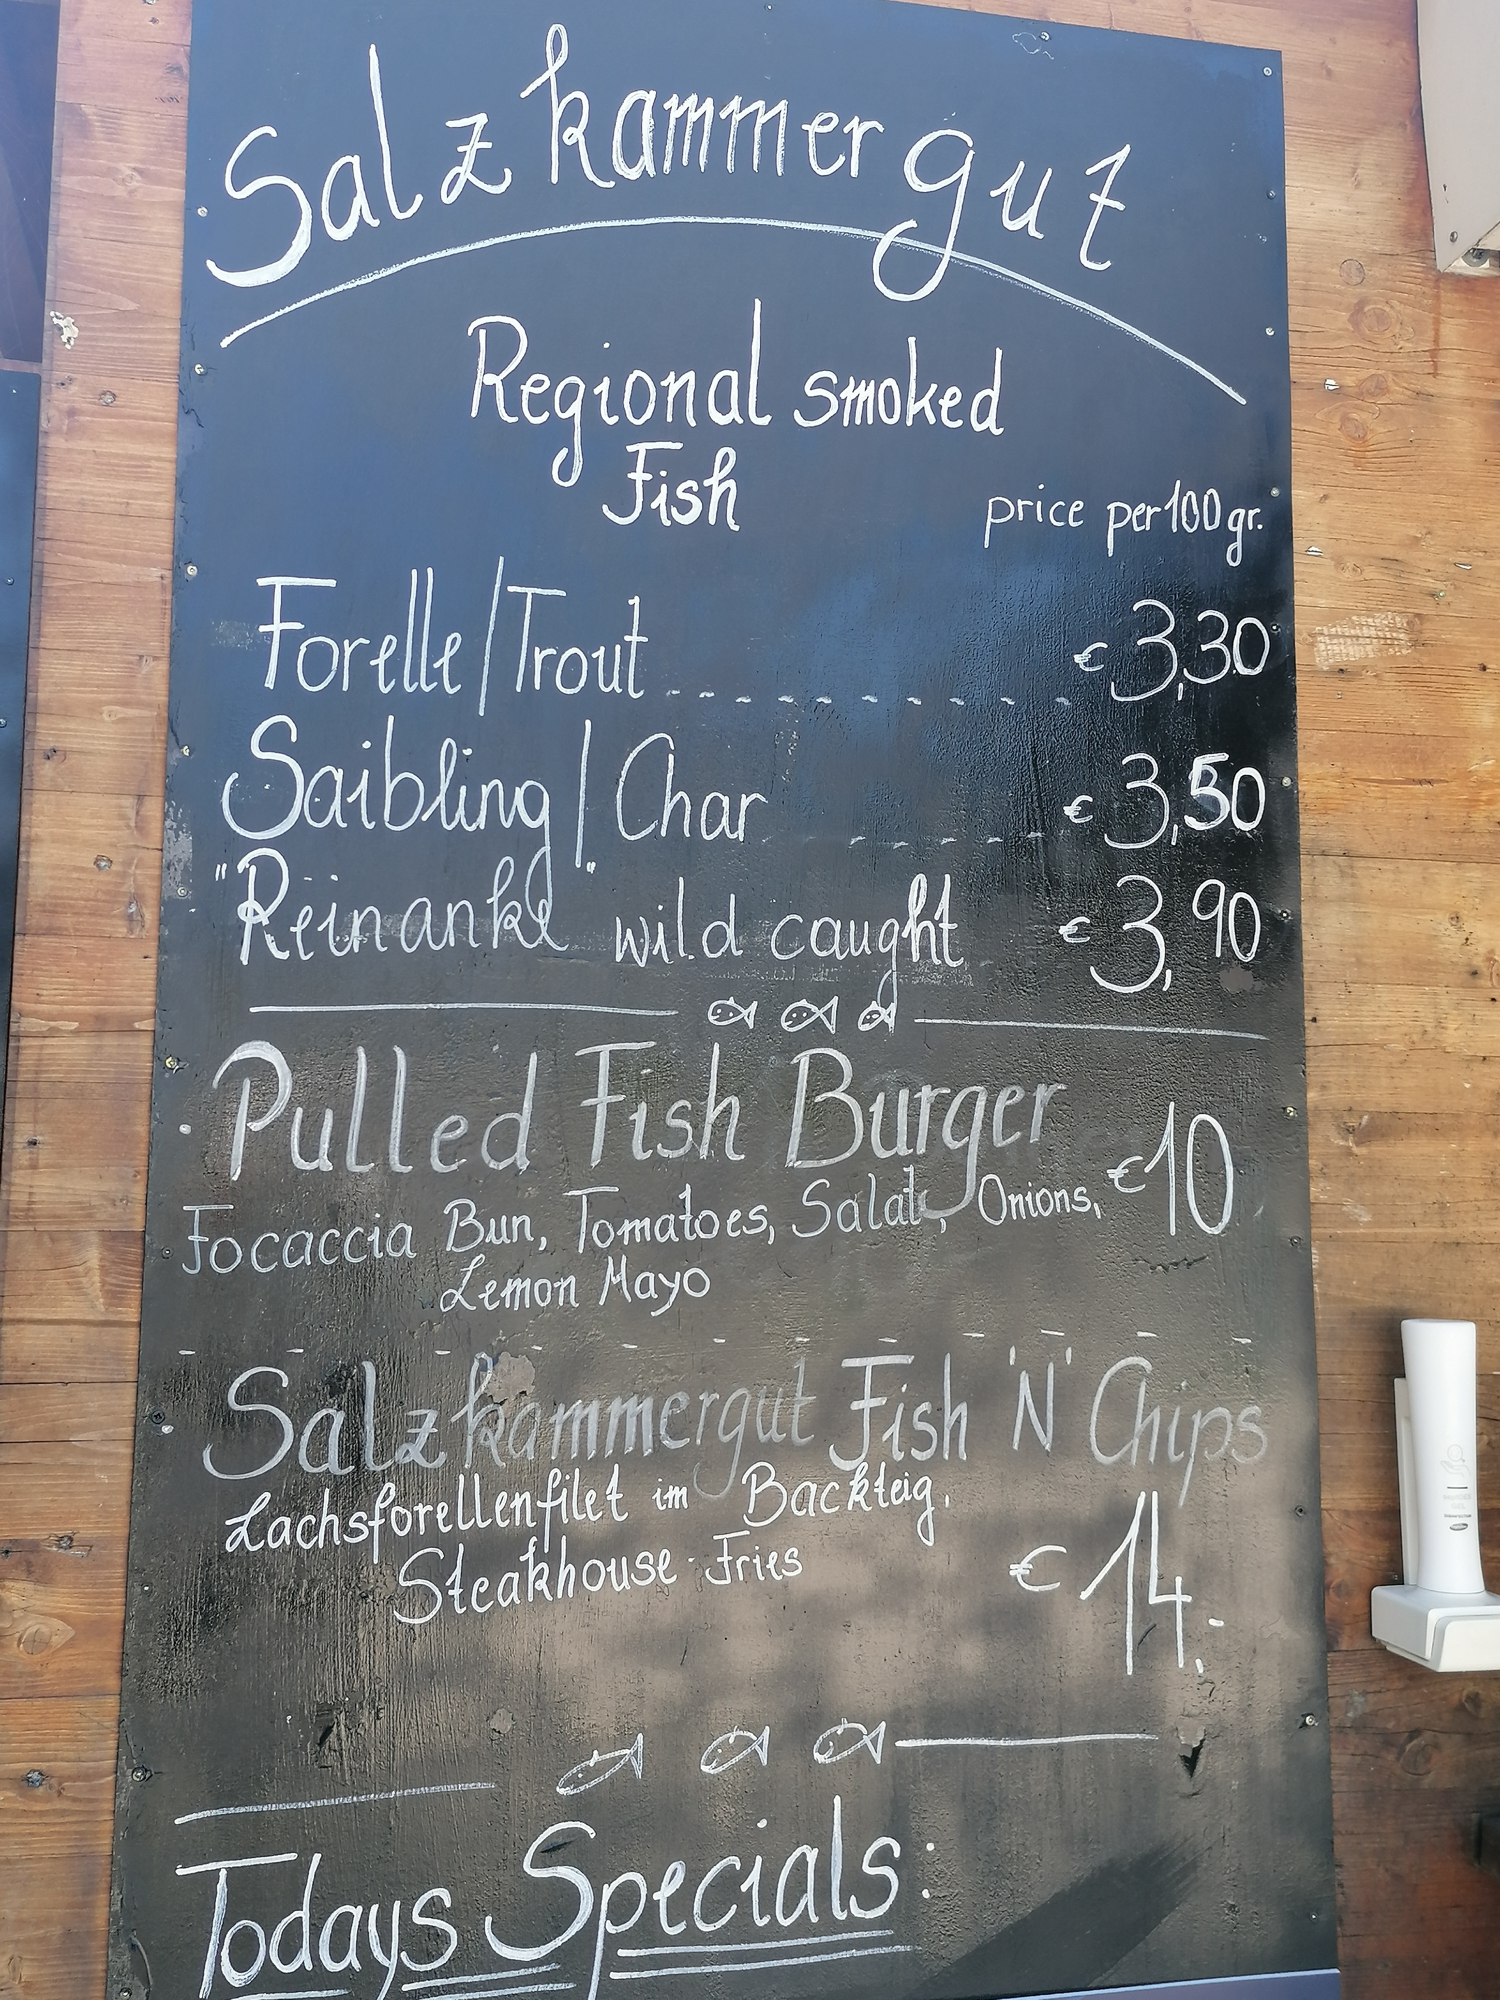 Salzkammergut
Regional smoked
Fish
price per 100 gr.
Forelle/Trout € 3,30
Saibling/Char € 3,50
"Reinanke" wild caught € 3,90
Pulled Fish Burger
€ 10
Focaccia Bun, Tomatoes, Salat, Onions,
Lemon Mayo
Salzkammergut Fish 'N' Chips
Lachsforellenfilet im Backteig,
Steakhouse-Fries
€ 14,-
Todays Specials: